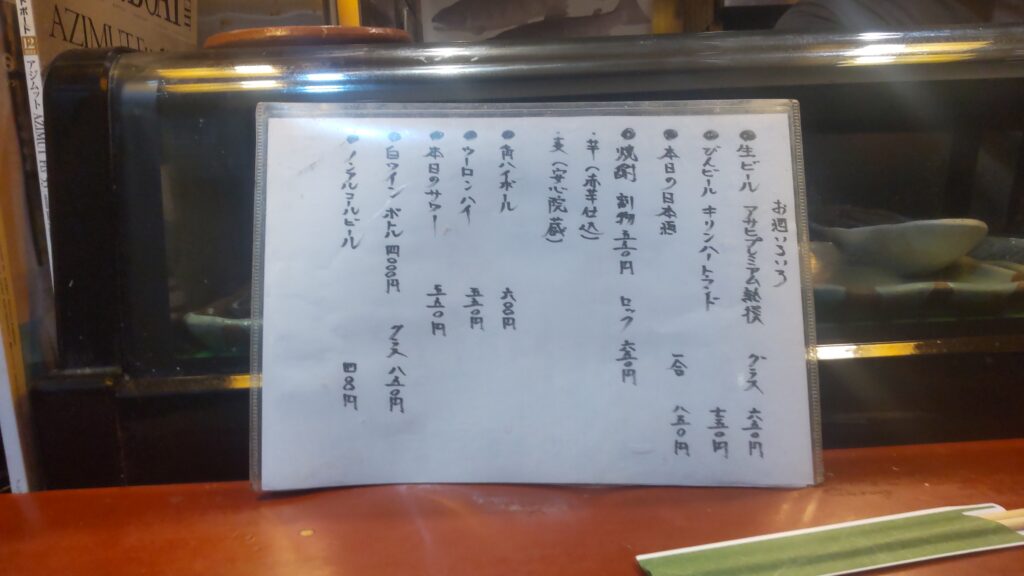 お酒いろいろ
●生ビール アサヒプレミアム熟撰 グラス 六五〇円
●びんビール キリンハートランド 七五〇円
●本日の日本酒 一合 八五〇円
●焼酎 割物 五五〇円 ロック 六五〇円
・芋(赤芋仕込)
・麦(安心院蔵)
●角ハイボール 六〇〇円
●ウーロンハイ 五五〇円
●本日のサワー 五五〇円
●白ワイン ボトル 四〇〇〇円 グラス 八五〇円
●ノンアルコールビール 四〇〇円
アジムット AZIMUT
AZIMUT